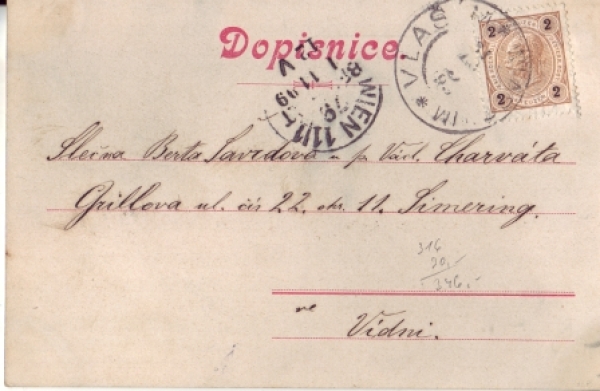 Dopisnice.
2 2 2 2
VLAŠIM
WIEN 11/1
Slečna Berta Savrdova u p. Václ. Charváta
Grillova ul. čís 22. okr. 11. Simering.
316
30.-
346.-
ve
Vídni.